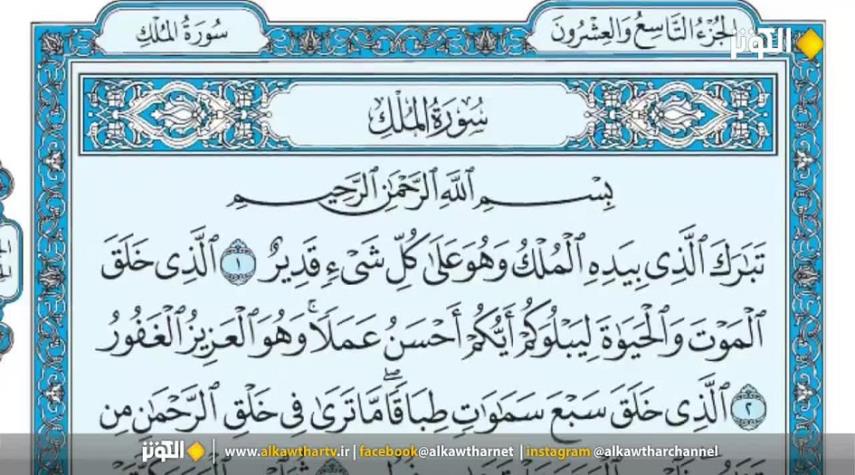 الجُزْءُ التَّاسِعُ وَالعِشْرُونَ
سُورَةُ المُلْكِ
الكوثر
سُورَةُ المُلْكِ
بِسْمِ اللَّهِ الرَّحْمَٰنِ الرَّحِيمِ
تَبَارَكَ الَّذِي بِيَدِهِ الْمُلْكُ وَهُوَ عَلَىٰ كُلِّ شَيْءٍ قَدِيرٌ ١ الَّذِي خَلَقَ
الْمَوْتَ وَالْحَيَوٰةَ لِيَبْلُوَكُمْ أَيُّكُمْ أَحْسَنُ عَمَلًا ۚ وَهُوَ الْعَزِيزُ الْغَفُورُ
٢ الَّذِي خَلَقَ سَبْعَ سَمَاوَاتٍ طِبَاقًا ۖ مَّا تَرَىٰ فِي خَلْقِ الرَّحْمَٰنِ مِن
الكوثر www.alkawthartv.ir | facebook@alkawtharnet | instagram @alkawtharchannel